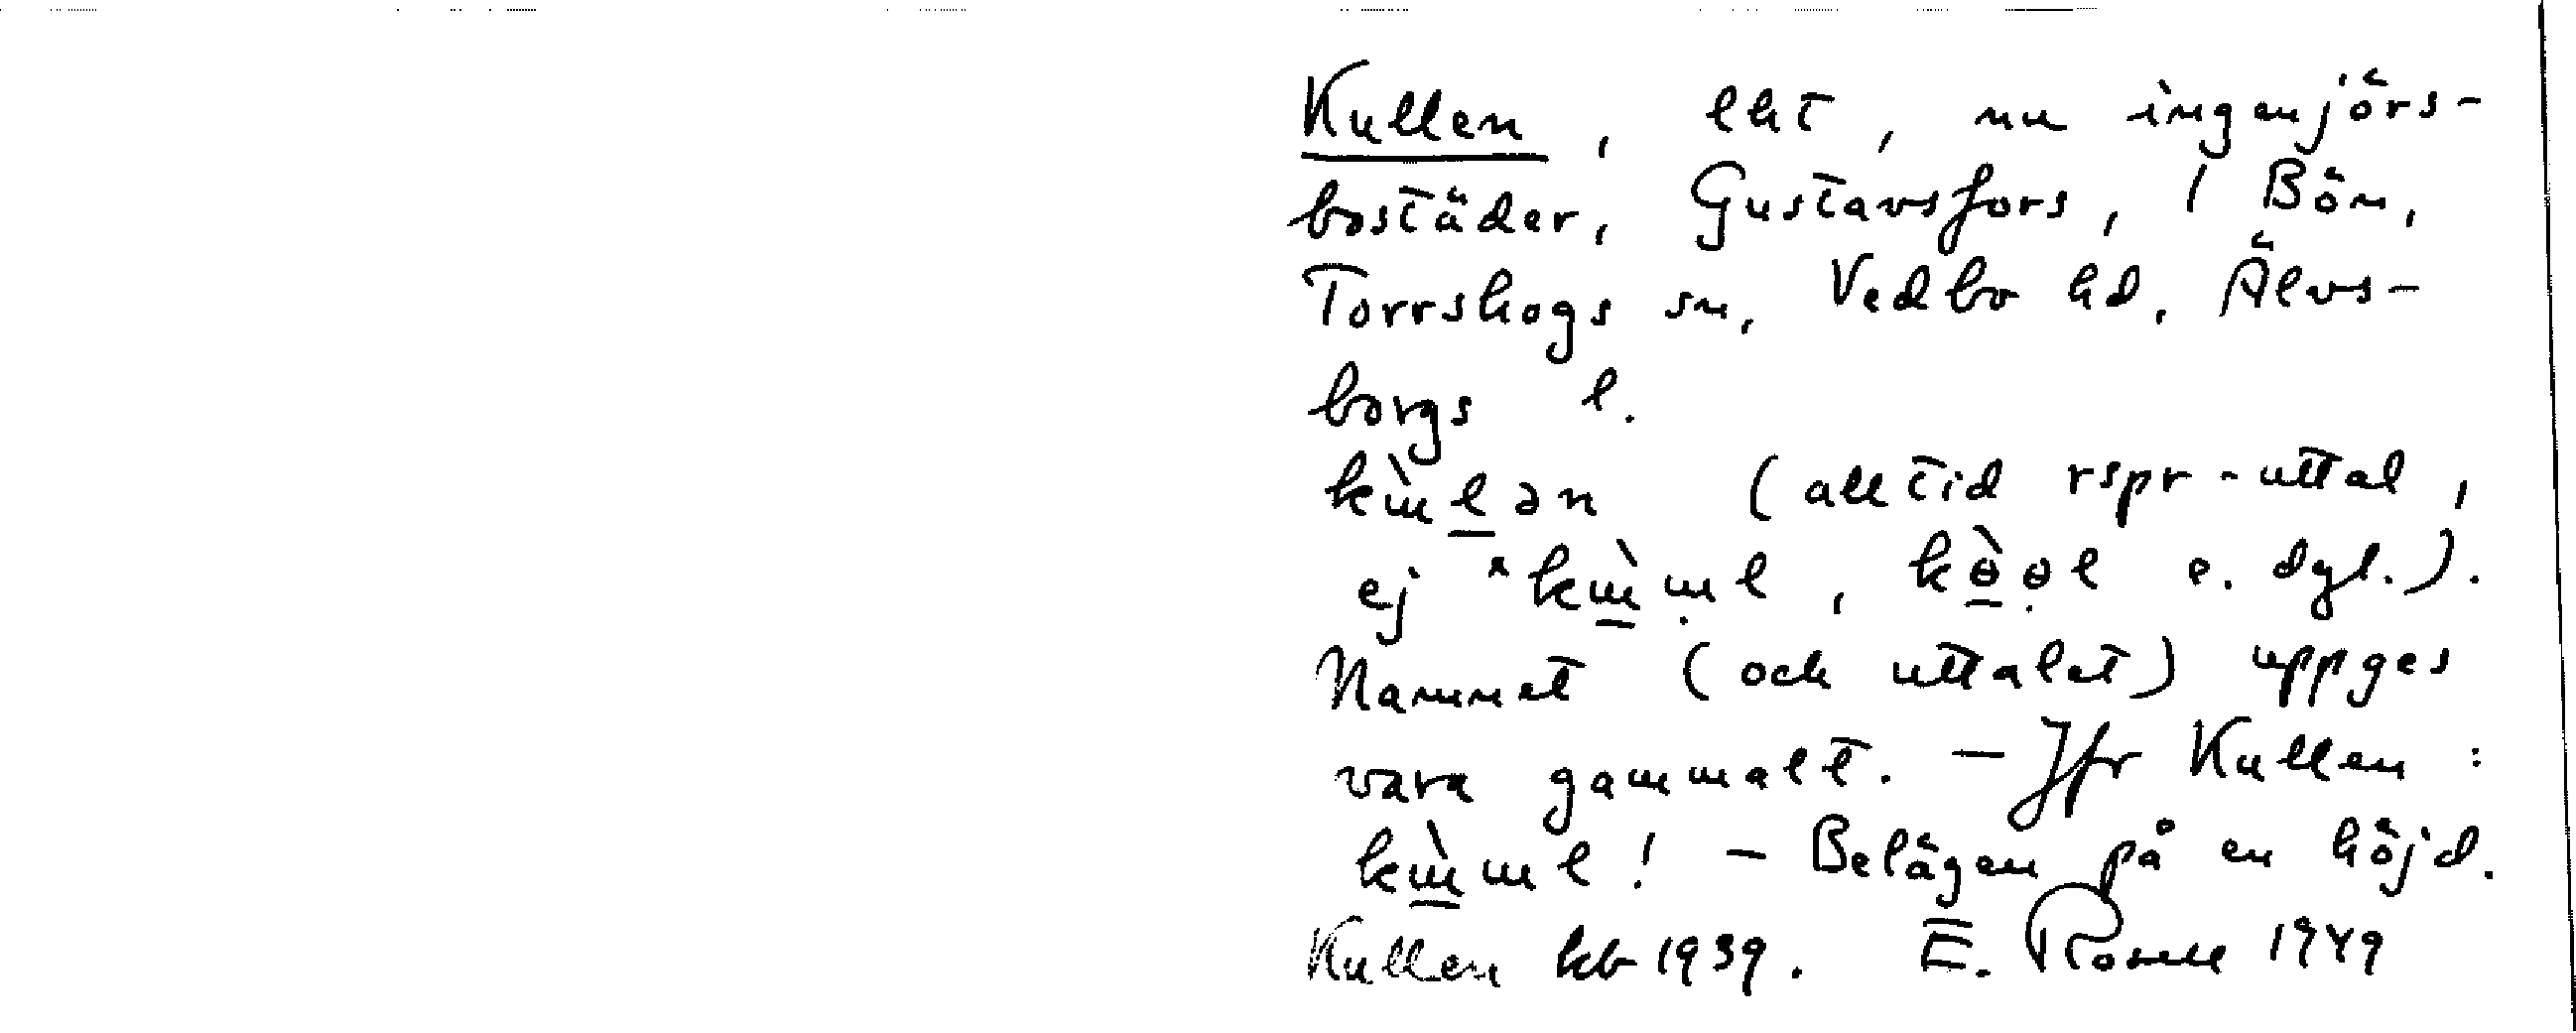 Kullen, lht, nu ingenjörs-
bostäder, Gustavsfors, 1 Bön,
Torrskogs sn, Vedbo hd, Älvs-
borgs l.
(alltid rspr-uttal,
ej e. dyl.).
Namnet (och uttalet) uppges
vara gammalt. - Jfr Kullen:
! - Belägen på en höjd.
Kullen kb 1939. E. Rosell 1949